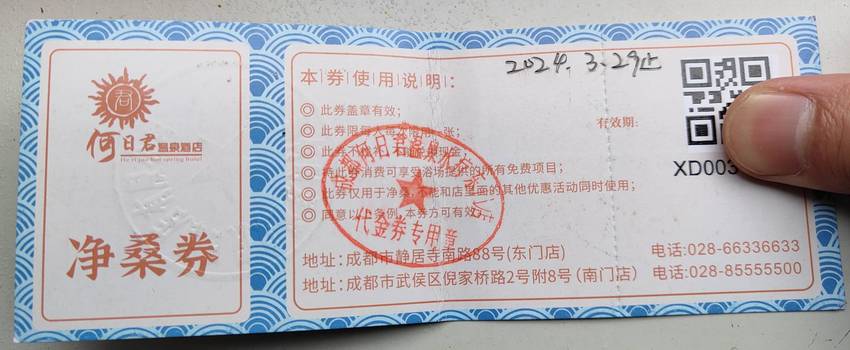 何日君温泉酒店
He Ri Jun hot spring hotel
净桑券
本券使用说明：
2024.3.29止
有效期:
◎ 此券盖章有效；
◎ 此券限每人每次使用一张；
◎ 此券不
现金；
◎ 持此券消费可享受浴场提供的所有免费项目；
◎ 此券仅用于净桑，不能和店里面的其他优惠活动同时使用；
◎ 同意以上条例，本券方可有效。
代金券专用章
XD003
地址:成都市静居寺南路88号(东门店) 电话:028-66336633
地址:成都市武侯区倪家桥路2号附8号(南门店) 电话:028-85555500